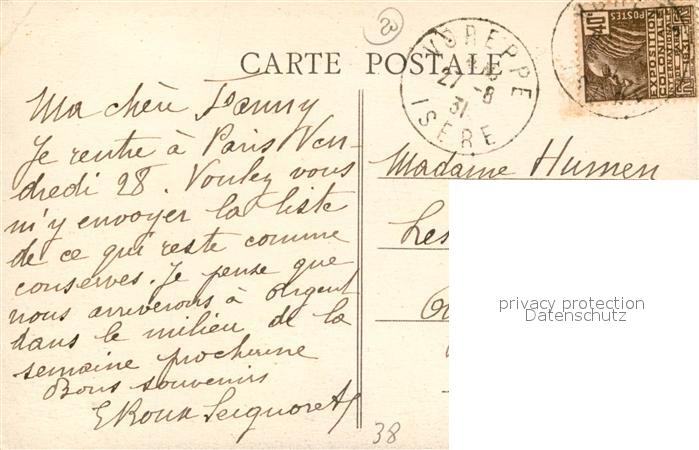 CARTE POSTALE
VOREPPE
27-8
31
ISÈRE
POSTES
40c
EXPOSITION
COLONIALE
Ma chère Fanny
Je rentre à Paris Ven-
dredi 28. Voulez vous
m'y envoyer la liste
de ce qui reste comme
conserves. Je pense que
nous arriverons à Argent
dans le milieu de la
semaine prochaine
Bons souvenirs
E Roux Seignoret
Madame Humen
Les
privacy protection
Datenschutz
38